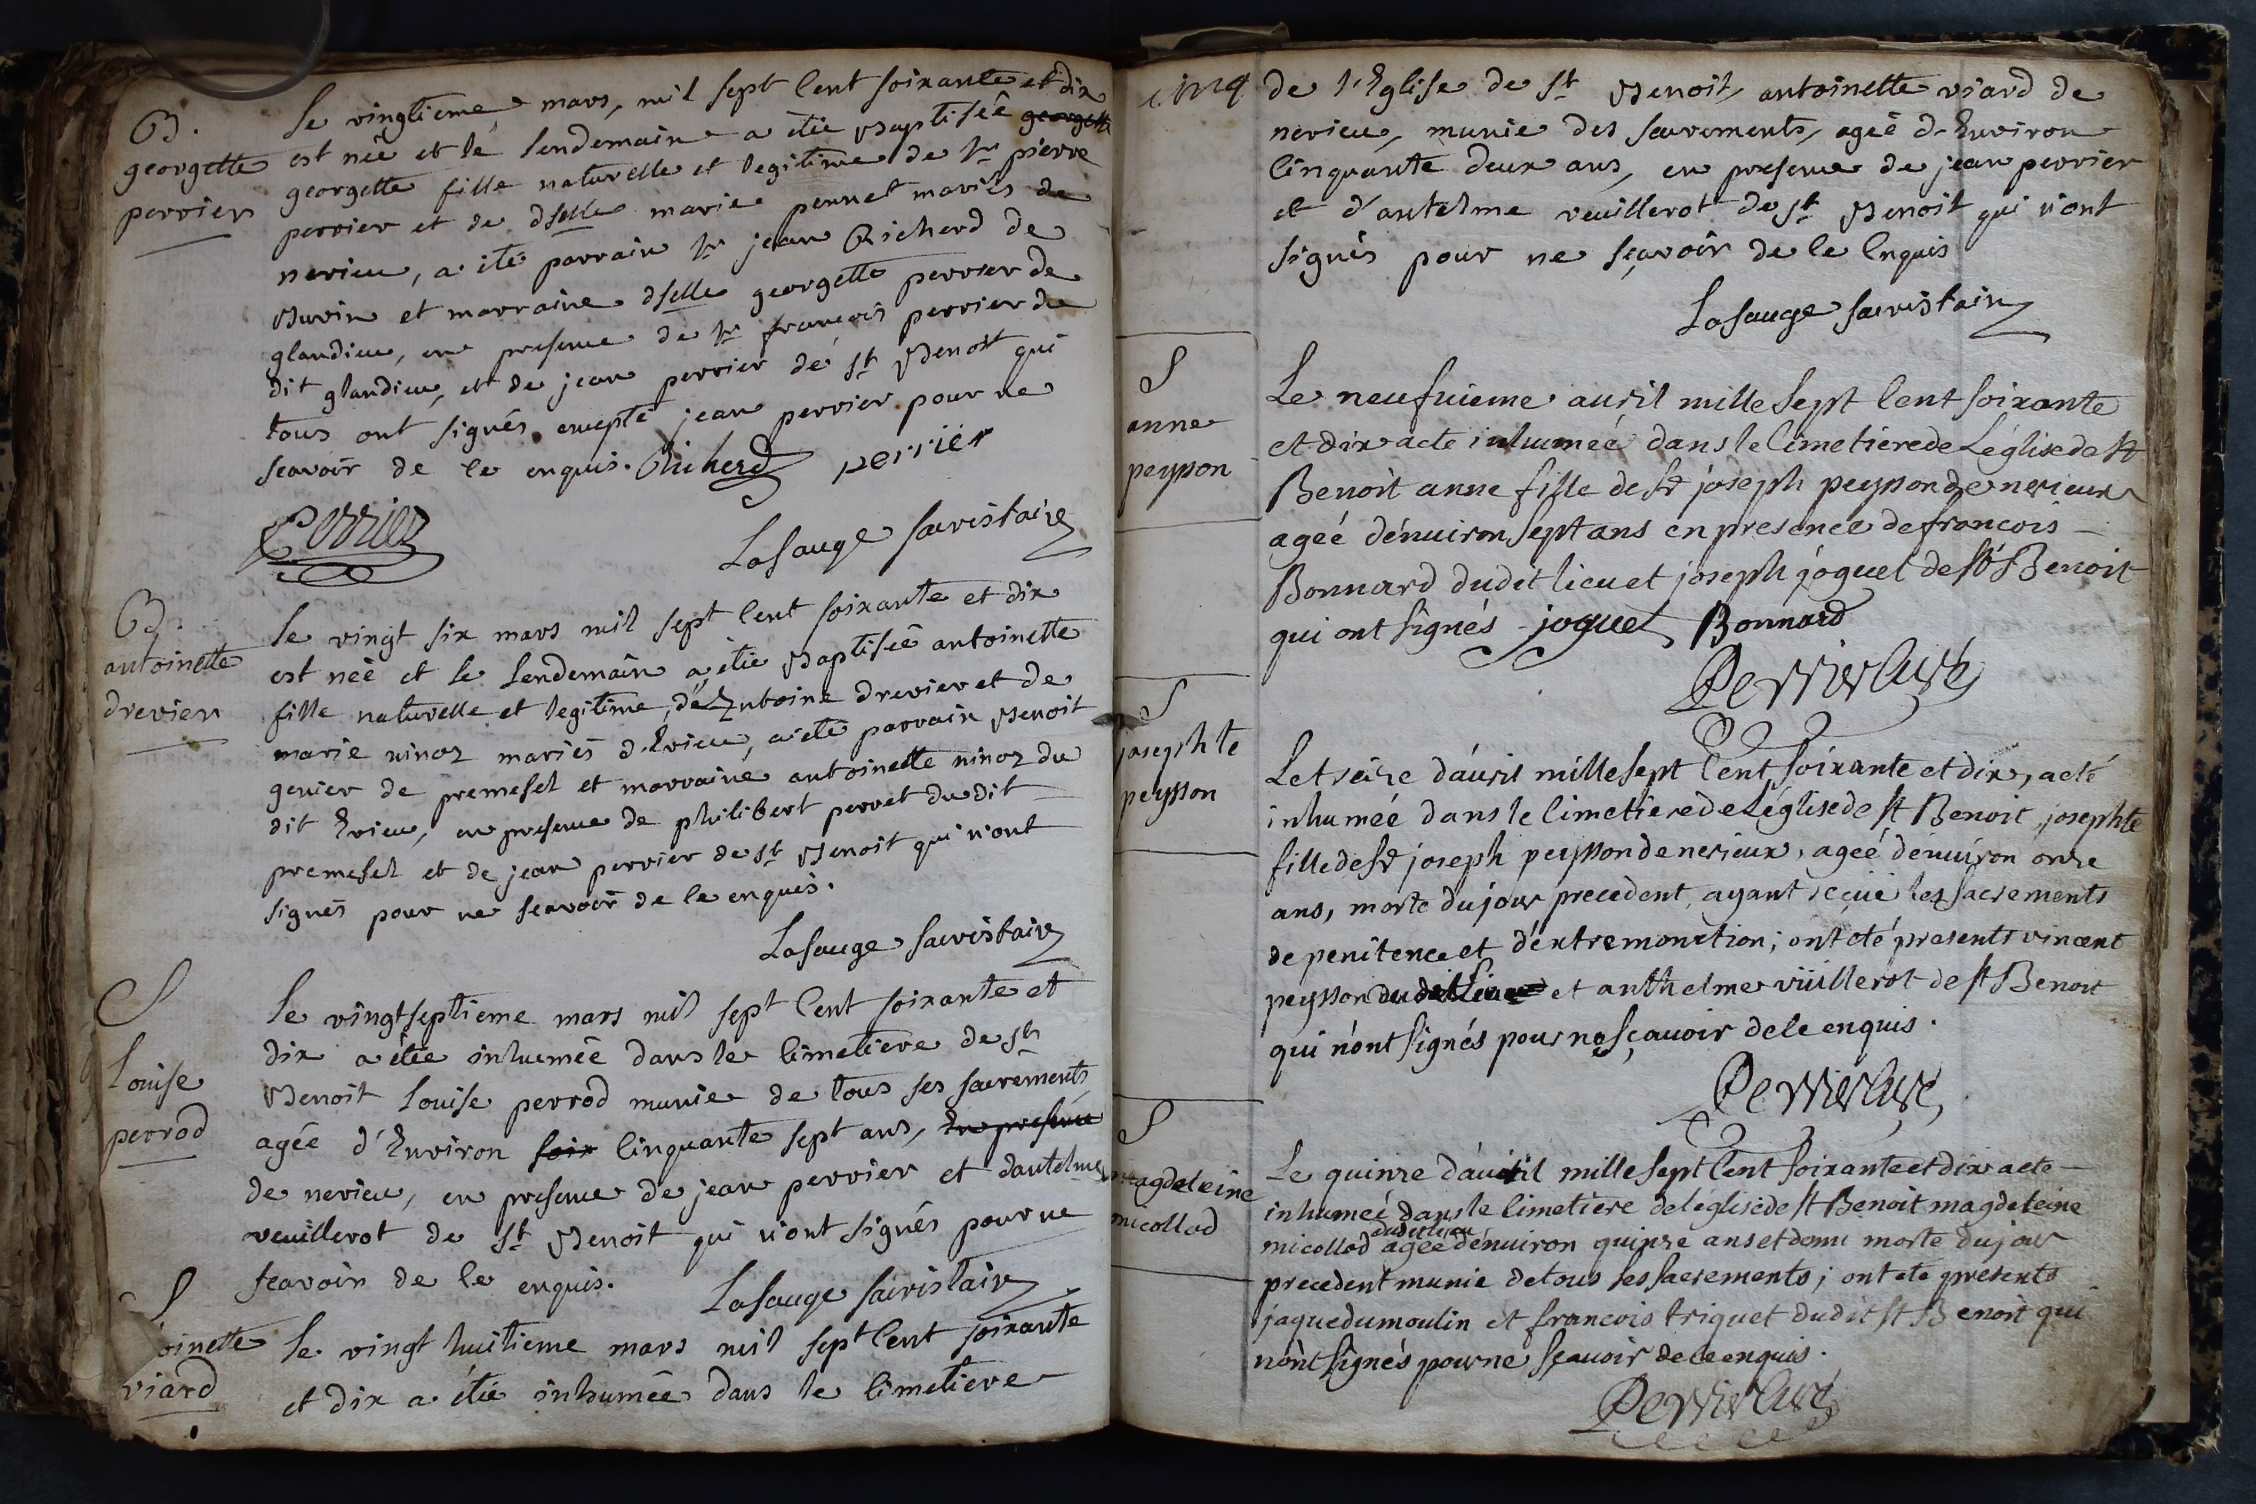 B.
georgette
perrier
Le vingtieme mars, mil sept Cent soixante et dix
est née et le lendemain a étée Baptisée georgette
georgette fille naturelle et legitime de Sr pierre
perrier et de dselle marie pennet mariés de
nerieu, a été parrain Sr jean Richerd de
Buvin et marraine dselle georgette perrier de
glandieu, en presence de Sr françois perrier du
dit glandieu, et de jean perrier de St Benoit qui
tous ont signés excepté jean perrier pour ne
scavoir de ce enquis. Richerd perrier
Perrier
Lasauge sacristain
B.
antoinette
drevier
Le vingt six mars mil sept Cent soixante et dix
est née et le Lendemain a étée Baptisée antoinette
fille naturelle et legitime, de Entoine drevier et de
marie ninoz mariés d'Evieu, a été parrain Benoit
genier de premesel et marraine antoinette ninoz du
dit Evieu, en presence de philibert perret du dit
premesel et de jean perrier de St Benoit qui n'ont
signés pour ne scavoir de ce enquis.
Lasauge sacristain
S
Louise
perrod
Le vingtseptieme mars mil sept Cent soixante et
dix a étée inhumée dans le Cimetiere de St
Benoit Louise perrod munie de tous ses sacrements
agée d'Environ soix Cinquante sept ans, En presence
de nerieu, en presence de jean perrier et dantelme
veuillerot de St Benoit qui n'ont signés pour ne
scavoir de ce enquis. Lasauge sacristain
S
oinette
viard
Le vingt huitieme mars mil sept Cent soixante
et dix a étée inhumée dans le Cimetiere
de l'Eglise de St Benoit, antoinette viard de
nerieu, munie des sacrements, agée d'Environ
Cinquante deux ans, en presence de jean perrier
et d'antelme veuillerot de St Benoit qui n'ont
signés pour ne sçavoir de ce Enquis
Lasauge sacristain
S
anne
peysson
Le neufuieme auril mille sept Cent soixante
et dix aeté inhumée dans le Cimetiere de Léglise de St
Benoit anne fille de Sr joseph peysson de nerieux
ageé dénuiron sept ans en presence de francois
Bonnard dudit lieu et joseph joguet de St Benoit
qui ont signés joguet Bonnard
Perrier Curé
S
josephte
peysson
Le treize dauril mille sept Cent soixante et dix, aeté
inhumée dans le Cimetiere de Léglise de St Benoit, josephte
fille de Sr joseph peysson de nerieux, ageé dénuiron onze
ans, morte du jour precedent, ayant reçuë les sacrements
de penitence et d'extremonction; ont été presents vincent
peysson dudit lieu et anthelme vüillerot de St Benoit
qui n'ont signés pour ne sçauoir de ce enquis.
Perrier Curé
S
magdeleine
micollod
Le quinze dauril mille sept Cent soixante et dix aeté
inhumeé dans le Cimetiere de léglise de St Benoit magdeleine
dudit lieu
micollod ageé dénuiron quinze ans et demi morte du jour
precedent munie de tous ses sacrements; ont eté presents
jaque dumoulin et francois triquet dudit St Benoit qui
nont signés pour ne sçauoir de ce enquis.
Perrier Curé